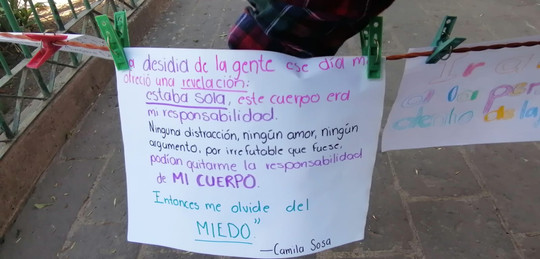 a desidia de la gente ese día m
ofreció una revelación:
estaba sola, este cuerpo era
mi responsabilidad.
Ninguna distracción, ningún amor, ningún
argumento, por irrefutable que fuese,
podían quitarme la responsabilidad
de MI CUERPO.
Entonces me olvide del
MIEDO"
—Camila Sosa